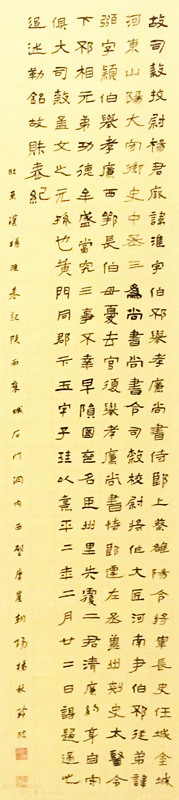 故司隸校尉楊君厥諱淮字伯邳舉孝廉尚書侍郎上蔡雒陽令將軍長史任城金城
河東山陽太守御史中丞三為尚書尚書令司隸校尉將作大匠河南尹伯邳從弟諱
弼字穎伯舉孝廉西鄂長伯母憂去官復舉孝廉尚書侍郎遷左丞冀州刺史太醫令
下邳相元弟功德牟盛當究三事不幸早隕國喪名臣州里失覆二君清廉約身自守
俱大司隸孟文之元孫也黃門同郡卞玉字子珪以熹平二年二月廿二日謁歸過此
追述勒銘故財表紀
東漢楊淮表記陝西褒城石門洞內西壁摩崖